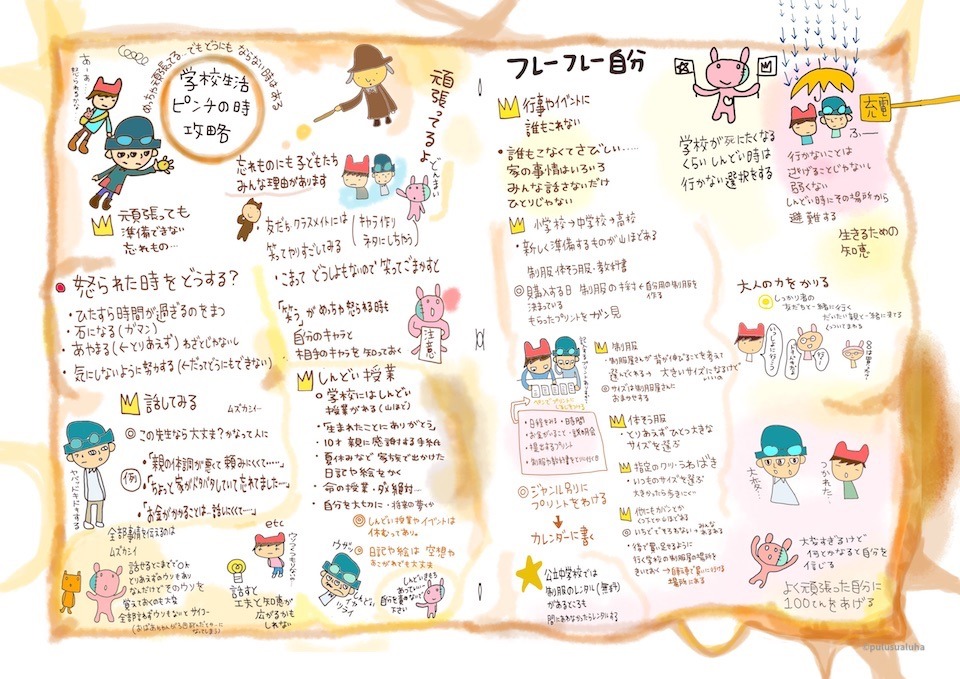 あーあ
怒られるかな
めっちゃ頑張ってる…でもどうにもならない時はある
学校生活
ピンチの時
攻略
頑張ってるよ
どんまい
忘れものにも子どもたち
みんな理由があります
頑張っても
準備できない
忘れもの…
友だち・クラスメイトには
笑ってやりすごしてみる
(キャラ作り
ネタにしちゃう)
・こまって どうしよもないので 笑ってごまかすと
「笑う」が めっちゃ怒れる時も
自分のキャラと
相手のキャラを 知っておく
注意
怒られた時をどうする?
・ひたすら時間が過ぎるのをまつ
・石になる(ガマン)
・あやまる(←とりあえず)わざとじゃないし
・気にしないように努力する(←だってどうにもできない)
話してみる
ムズカシイー
◎この先生なら大丈夫?かなって人に
例
・「親の体調が悪くて頼みにくくて……」
・「ちょっと家がドタバタしていて忘れました…」
・「お金がかかることは…話しにくくて…」
ヤバッドキドキする
全部事情を伝えるのは
ムズカシイ
話せるとこまででOK
とりあえずウソもあり
なんだけどそのウソを
覚えておくのも大変
全部言わずウソもない=サイコー
etc
話すと
工夫と知恵が
広がるかも
しれない
しんどい授業
◎学校にはしんどい
授業がある(山ほど)
・「生まれたことにありがとう」
・10才 親に感謝する手紙
・夏休みなど 家族で出かけた
日記や絵をかく
・命の授業・ダメ絶対…
・自分を大切に・将来の夢とか
◎しんどい授業やイベントは
休むってあり。
◎日記や絵は 空想や
あこがれでも大丈夫
ウザ
しんどい気もち
自分を責めないで
下さい
フレーフレー自分
行事やイベントに
誰もこれない
・誰もこなくてさびしい……
家の事情はいろいろ
みんな話さないだけ
ひとりじゃない
小学校→中学校→高校
・新しく準備するものが山ほどある
制服・体そう服・教科書
◎購入する日 制服の採寸←自分用の制服を
作る
決まっている
もらったプリントをガン見
制服
・制服屋さんが背が伸びることを考えて
選んでくれる→ 大きいサイズになるけど
いいの
◎サイズは制服屋さんに
おまかせする
・日程をみる・時間
・お金がいること・説明会
・提出するプリント
・制服や教科書をとりに行く日
体そう服
・とりあえずひとつ大きな
サイズを選ぶ
・指定のクツ・うわばき
・いつものサイズを選ぶ
大きかったら歩きにくー
・他にもカバンとか
くつ下とか山ほどある
・いちどでそろわない←みんな
あるある
・後で買い足せるように
行く学校の制服屋の場所を
きいておく→自転車で買いに行ける
場所にある
◎ジャンル別に
プリントをわける
↓
カレンダーに書く
公立中学校では
制服のレンタル(無料)
があるところも
間にあわなかったらレンタルする
学校が死にたくなる
くらい しんどい時は
行かない選択をする
充電
ふー
行かないことは
逃げることじゃないし
弱くない
しんどい時にその場所から
避難する
生きるための
知恵
大人の力をかりる
しっかり者の
友だちと一緒に行く
だいたい親と一緒に来てる
いっしょに行こう
大変…
つかれた…
大丈夫すぎるけど
何とかなると自分を
信じる
よく頑張った自分に
100てんをあげる
©pulusualuha